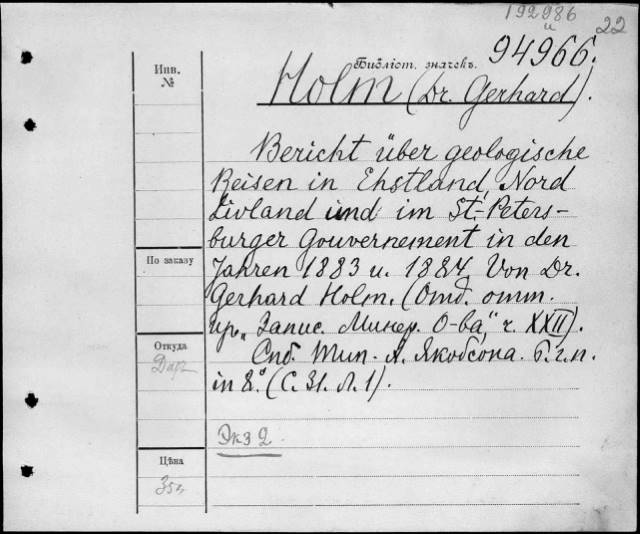 192986
и
22
94966.
Библіот. значекъ.
Инв.
№
Holm (Dr. Gerhard).
Bericht über geologische
Reisen in Ehstland, Nord
Livland und im St.-Peters-
burger Gouvernement in den
По заказу
Jahren 1883 u. 1884. Von Dr.
Gerhard Holm. (Отд. отт.
изъ „Запис. Минер. О-ва," ч. XXII).
Откуда
Спб. Тип. А. Якобсона. б. г. п.
Дар
in 8.° (С. 31. Л. 1).
Экз 2.
Цѣна